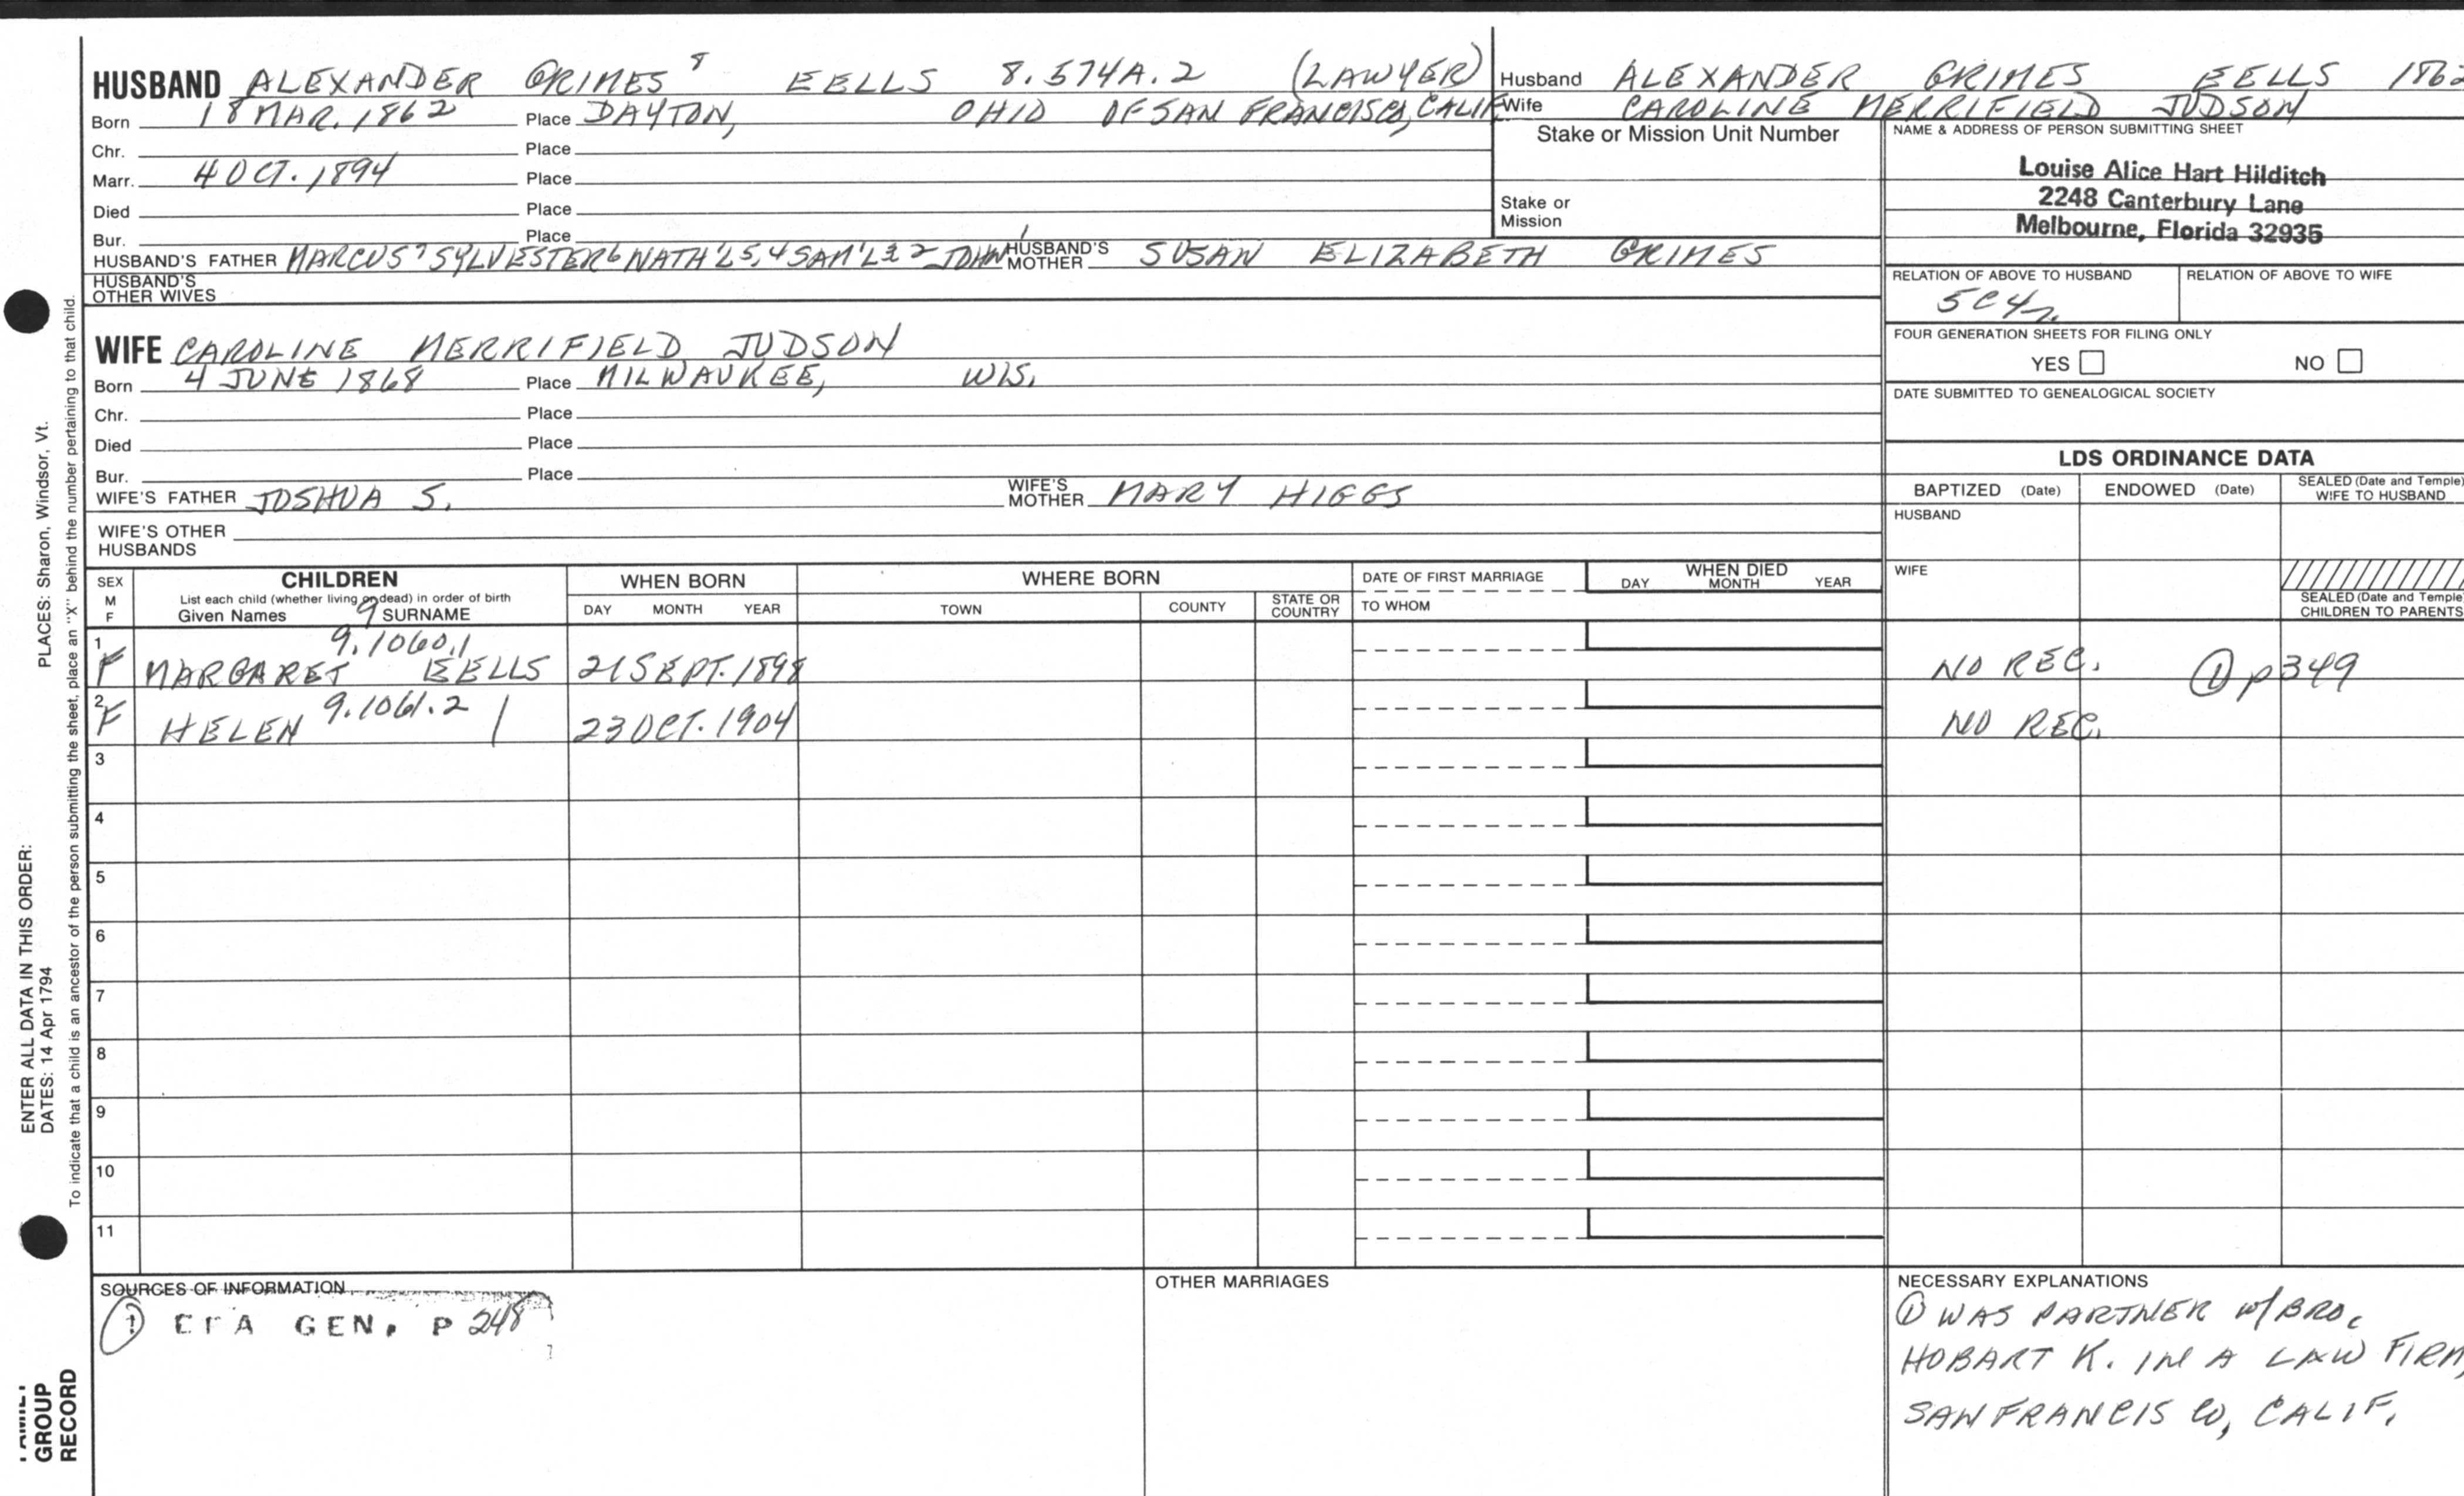 HUSBAND ALEXANDER GRIMES 8 EELLS 8.574A.2 (LAWYER)
Born 18 MAR. 1862 Place DAYTON, OHIO OF SAN FRANCISCO, CALIF.
Chr. Place
Marr. 4 OCT. 1894 Place
Died Place
Bur. Place
HUSBAND'S FATHER MARCUS 7 SYLVESTER 6 NATH'L 5, 4 SAM'L 3 2 JOHN 1 HUSBAND'S MOTHER SUSAN ELIZABETH GRIMES
HUSBAND'S OTHER WIVES
Husband ALEXANDER GRIMES EELLS 1862
Wife CAROLINE MERRIFIELD JUDSON
Stake or Mission Unit Number
Stake or Mission
NAME & ADDRESS OF PERSON SUBMITTING SHEET
Louise Alice Hart Hilditch
2248 Canterbury Lane
Melbourne, Florida 32935
RELATION OF ABOVE TO HUSBAND RELATION OF ABOVE TO WIFE
5C4r
FOUR GENERATION SHEETS FOR FILING ONLY
YES NO
DATE SUBMITTED TO GENEALOGICAL SOCIETY
WIFE CAROLINE MERRIFIELD JUDSON
Born 4 JUNE 1868 Place MILWAUKEE, WIS.
Chr. Place
Died Place
Bur. Place
WIFE'S FATHER JOSHUA S. WIFE'S MOTHER MARY HIGGS
WIFE'S OTHER HUSBANDS
LDS ORDINANCE DATA
BAPTIZED (Date) ENDOWED (Date) SEALED (Date and Temple) WIFE TO HUSBAND
HUSBAND
WIFE
SEALED (Date and Temple) CHILDREN TO PARENTS
SEX M F CHILDREN WHEN BORN WHERE BORN DATE OF FIRST MARRIAGE WHEN DIED
List each child (whether living or dead) in order of birth
Given Names 9 SURNAME DAY MONTH YEAR TOWN COUNTY STATE OR COUNTRY TO WHOM DAY MONTH YEAR
1 9.1060.1
F MARGARET EELLS 21 SEPT. 1898 NO REC. ① p349
2 F HELEN 9.1061.2 | 23 OCT. 1904 NO REC.
3
4
5
6
7
8
9
10
11
SOURCES OF INFORMATION
① EFA GEN. P 248
OTHER MARRIAGES
NECESSARY EXPLANATIONS
① WAS PARTNER w/ BRO.
HOBART K. IN A LAW FIRM,
SAN FRANCISCO, CALIF.
PLACES: Sharon, Windsor, Vt.
ENTER ALL DATA IN THIS ORDER:
DATES: 14 Apr 1794
To indicate that a child is an ancestor of the person submitting the sheet, place an "X" behind the number pertaining to that child.
FAMILY
GROUP
RECORD